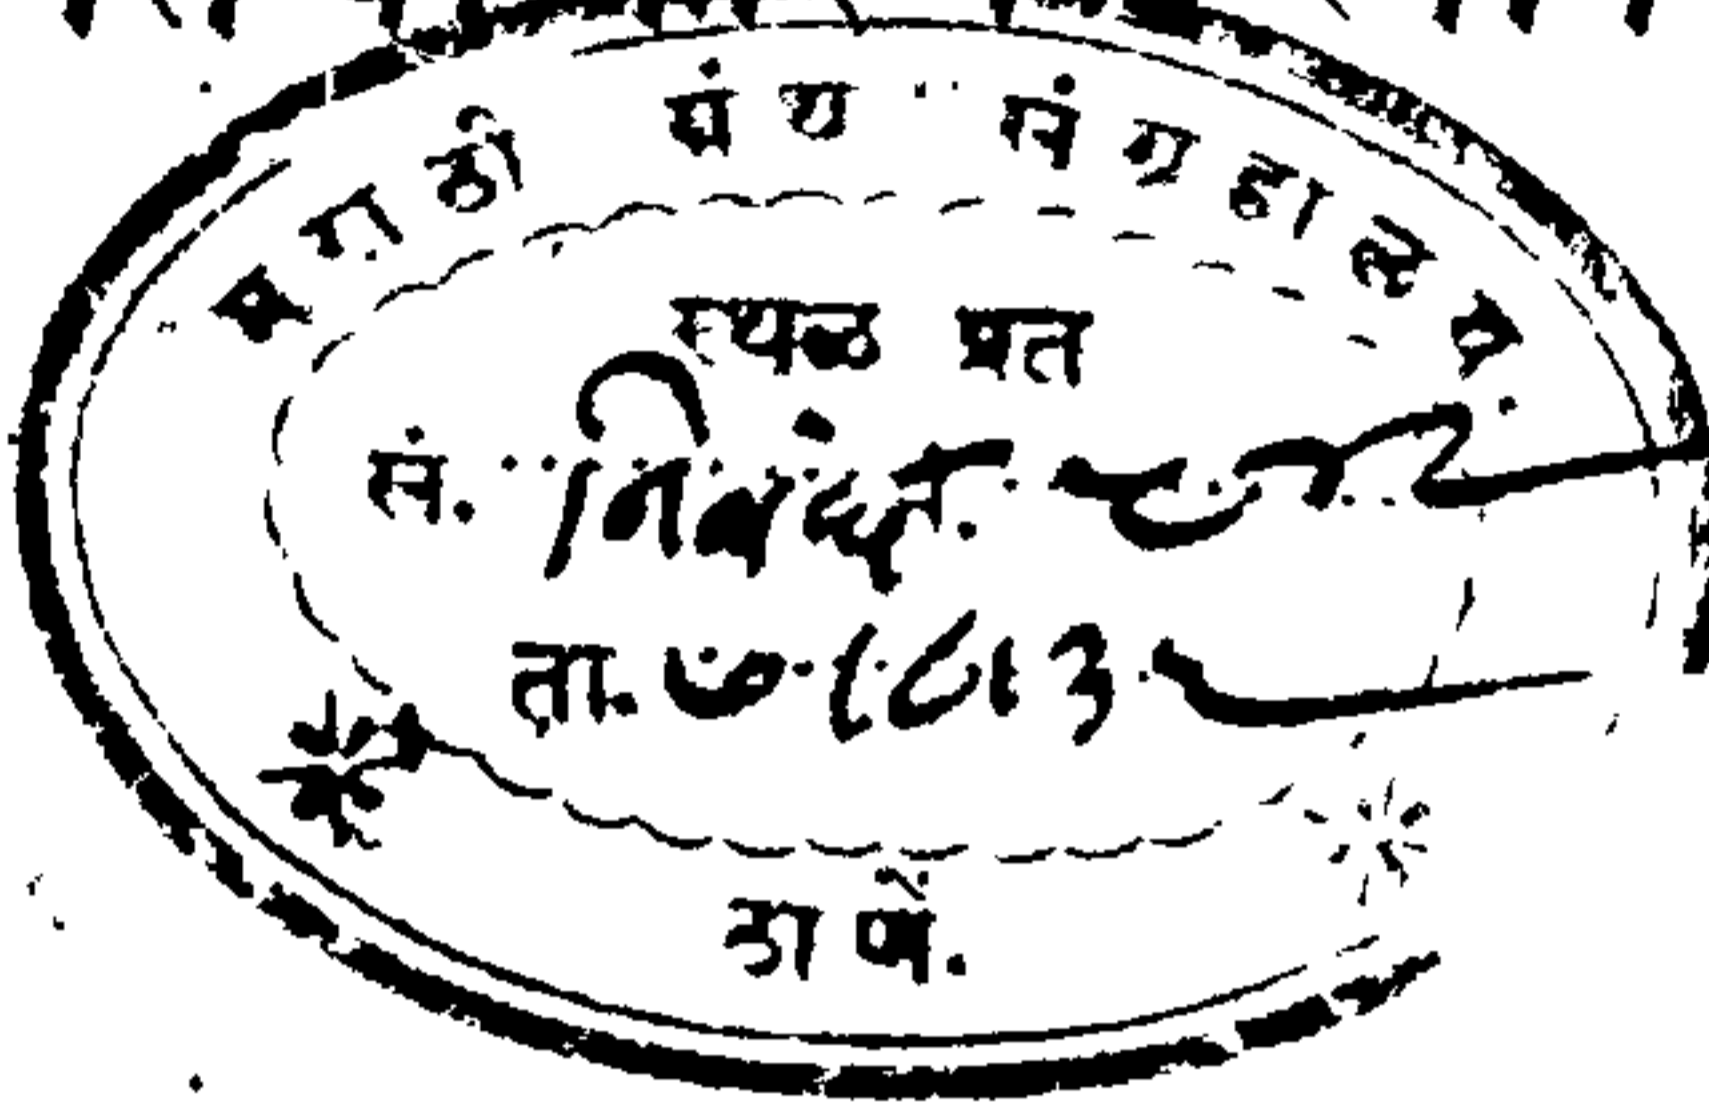 मराठी ग्रंथ संग्रहालय.
स्थळ प्रत
सं. निबंध.
ता.
ठाणें.